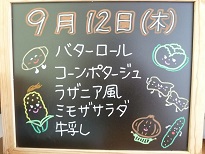 9月12日(木)
バターロール
コーンポタージュ
ラザニア風
ミモザサラダ
牛乳し